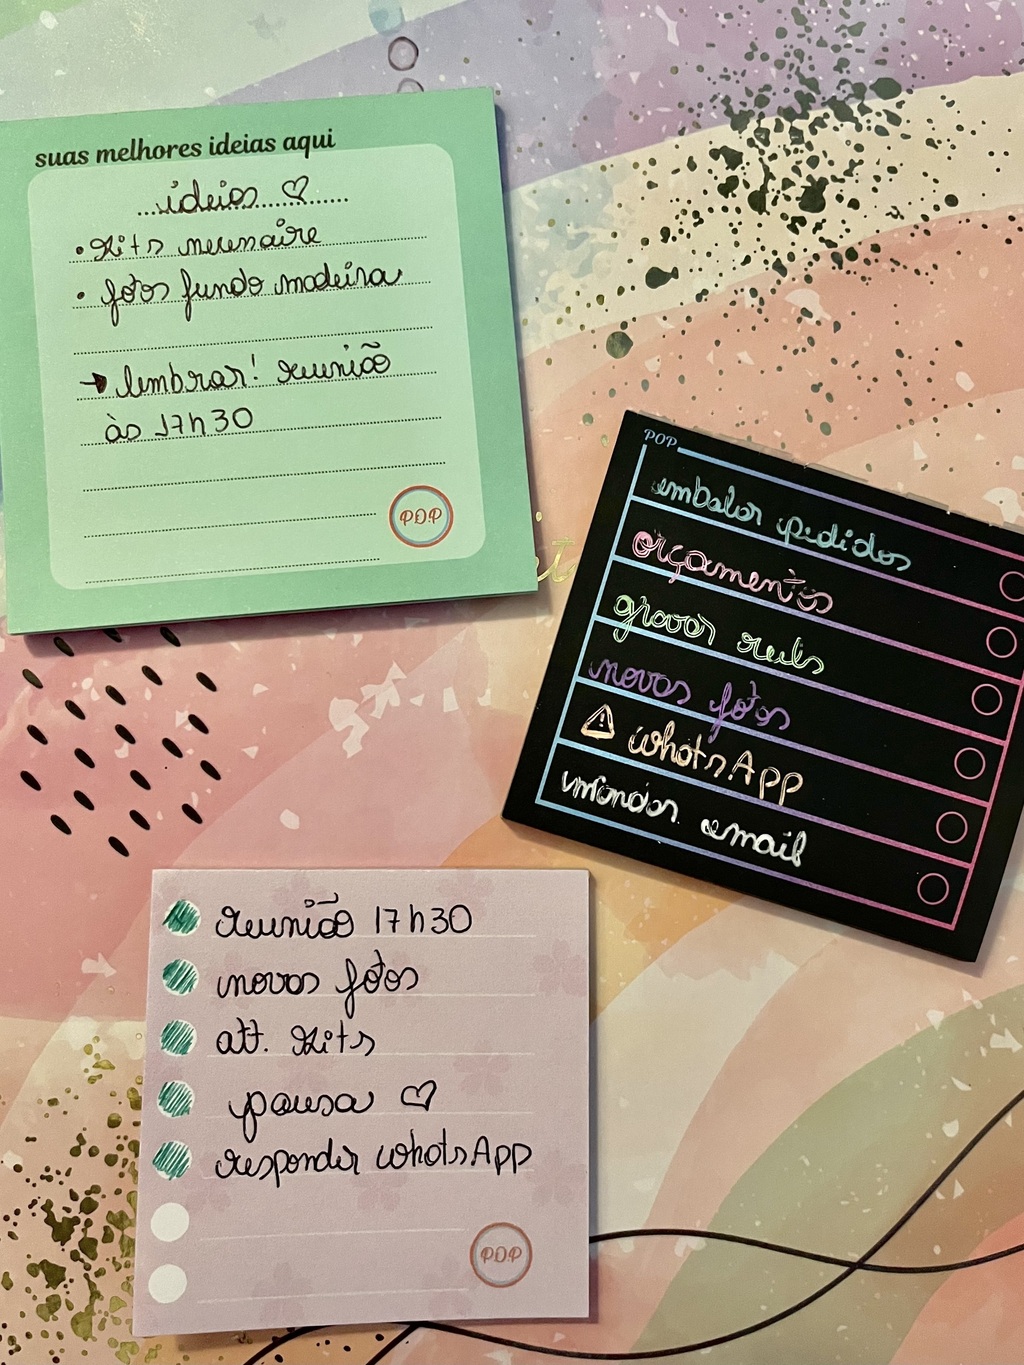 suas melhores ideias aqui
ideias ♡
• Kits necessaire
• fotos fundo madeira
→ lembrar! reunião
às 17h30
POP
POP
embalar pedidos
orçamentos
gravar reels
novas fotos
⚠ WhatsApp
email
reunião 17h30
novas fotos
att. Kits
pausa ♡
responder WhatsApp
POP